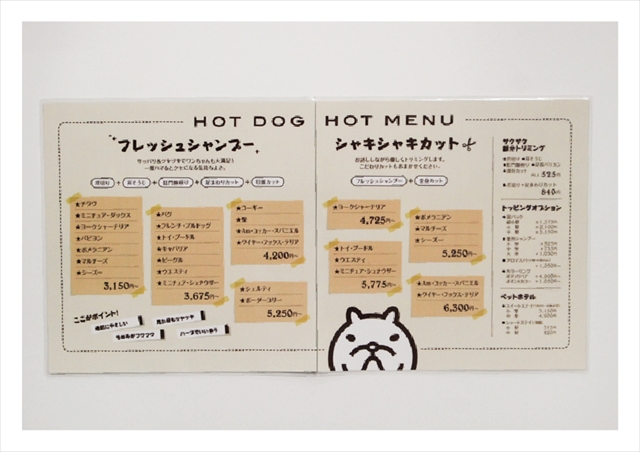 HOT DOG HOT MENU
フレッシュシャンプー
サッパリ&ツヤツヤでワンちゃんも大満足!
一度バブるとクセになる気持ちよさ。
爪切り + 耳そうじ + 肛門腺絞り + 足まわりカット + 肉球カット
★チワワ
★ミニチュア・ダックス
★ヨークシャーテリア
★パピヨン
★ポメラニアン
★マルチーズ
★シーズー
3,150円~
★パグ
★フレンチ・ブルドッグ
★トイ・プードル
★キャバリア
★ビーグル
★ウエスティ
★ミニチュア・シュナウザー
3,675円~
★コーギー
★柴
★Am・コッカー・スパニエル
★ワイヤー・フォックス・テリア
4,200円~
★シェルティ
★ボーダーコリー
5,250円~
ここがポイント!
地肌にやさしい
見た目もツヤツヤ
毛並みがフワフワ
ハーブでいい香り
シャキシャキカット
お話ししながら優しくトリミングします。
こだわりカットもおまかせください。
フレッシュシャンプー + 全身カット
★ヨークシャーテリア
4,725円~
★トイ・プードル
★ウエスティ
★ミニチュア・シュナウザー
5,775円~
★ポメラニアン
★マルチーズ
★シーズー
5,250円~
★Am・コッカー・スパニエル
★ワイヤー・フォックス・テリア
6,300円~
サクサク
部分トリミング
ALL 525円
840円
トッピングオプション
ペットホテル